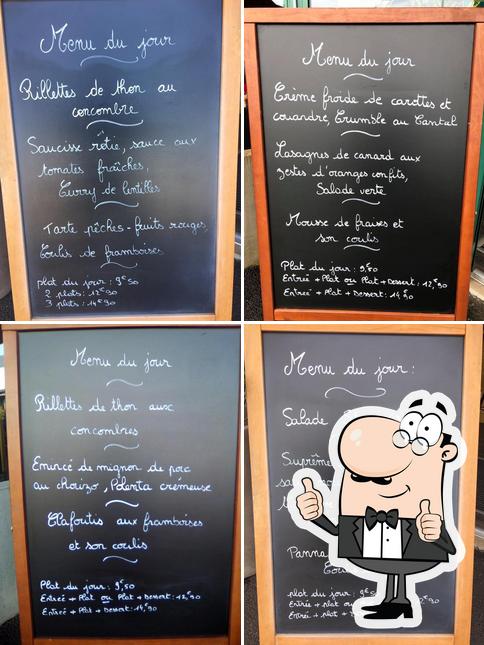 Menu du jour
Rillettes de thon au
concombre
Saucisse rôtie, sauce aux
tomates fraîches,
Curry de lentilles
Tarte pêches-fruits rouges,
Coulis de framboises
plat du jour : 9€50
2 plats : 12€90
3 plats : 14€90
Menu du jour
Crème froide de carottes et
coriandre, Crumble au Cantal
Lasagnes de canard aux
zestes d'oranges confits,
Salade verte
Mousse de fraises et
son coulis
Plat du jour : 9,50
Entrée + Plat ou Plat + Dessert : 12,€90
Entrée + Plat + Dessert : 14,90
Menu du jour
Rillettes de thon aux
concombres
Emincé de mignon de porc
au chorizo, Polenta crémeuse
Clafoutis aux framboises
et son coulis
Plat du jour : 9,€50
Entrée + Plat ou Plat + Dessert : 12,€90
Entrée + Plat + Dessert : 14,€90
Menu du jour :
Salade
Suprême
Panna
plat du jour : 9€
Entrée + plat ou
Entrée + plat +